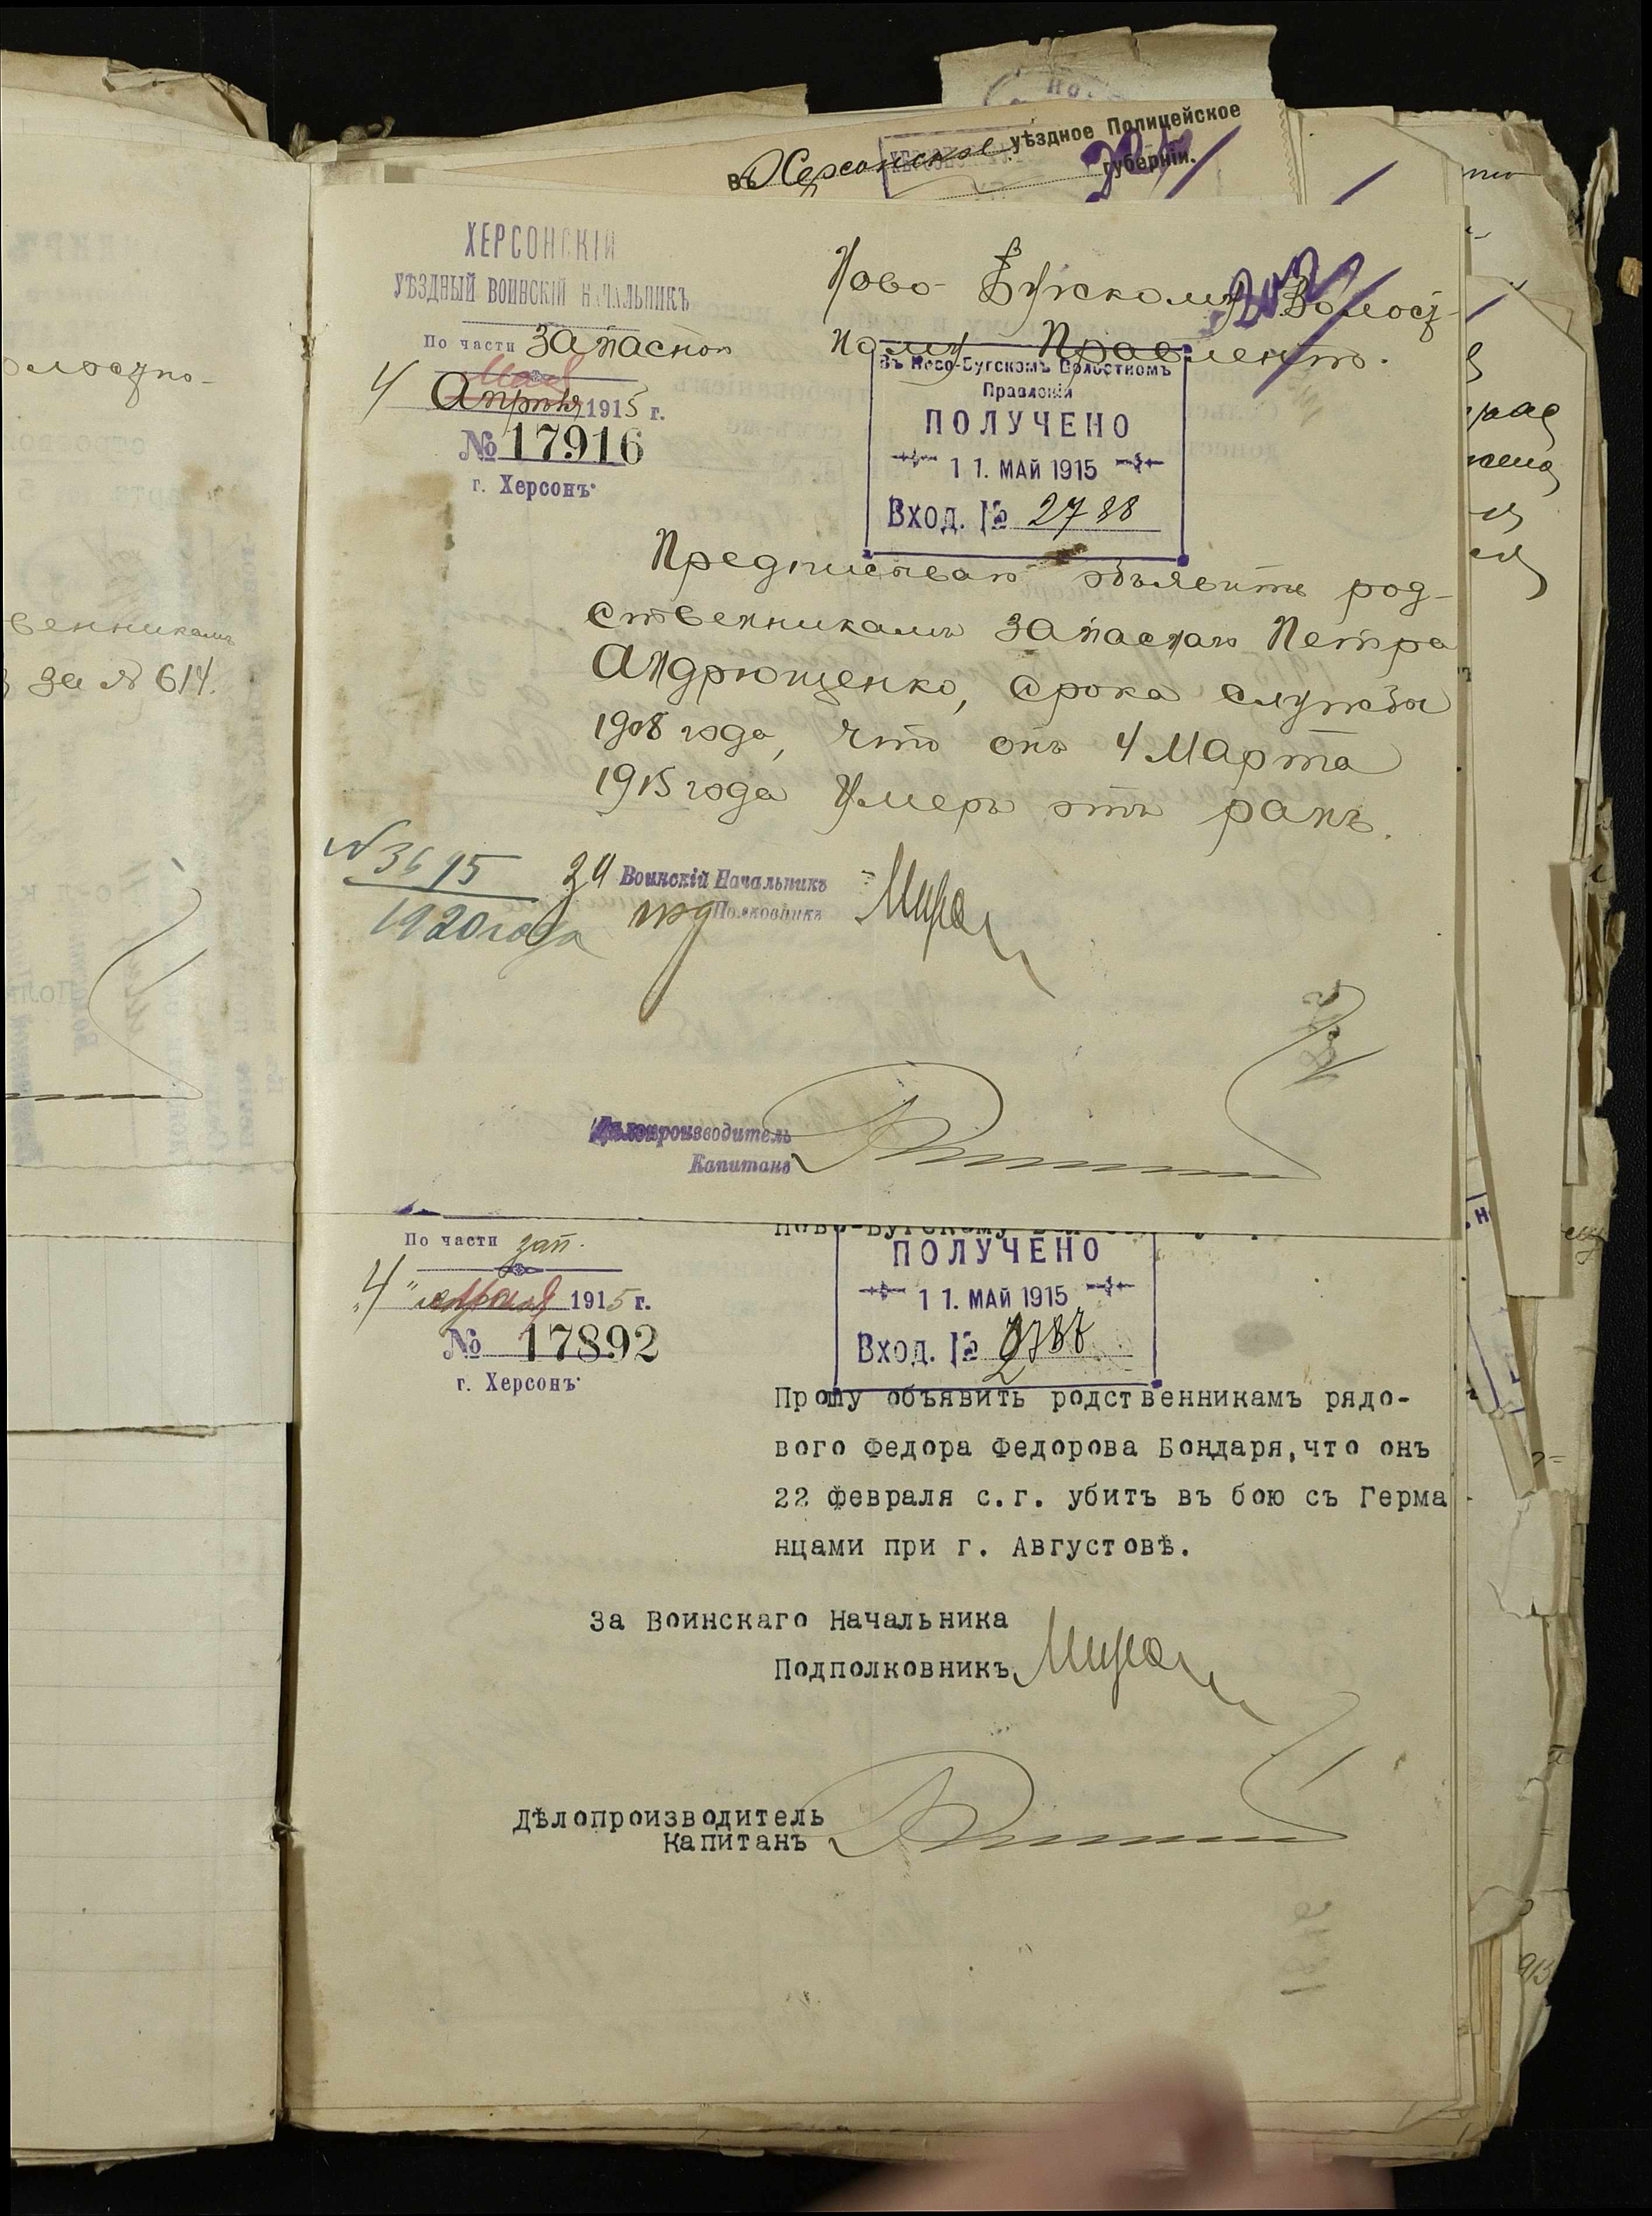 олостно-
венникамъ
за № 614.
Въ Херсонское уѣздное Полицейское
губерніи.
ХЕРСОНСКІЙ
УѢЗДНЫЙ ВОИНСКІЙ НАЧАЛЬНИКЪ
По части запасной
Мая
4 Апрѣля 1915 г.
№ 17916
г. Херсонъ
Ново-Бугскому Волост-
ному Правленію.
Въ Ново-Бугскомъ Волостномъ
Правленіи
ПОЛУЧЕНО
11. МАЙ 1915
Вход. № 2788
Предписываю объявить род-
ственникамъ запаснаго Петра
Андрющенко, срока службы
1908 года, что онъ 4 Марта
1915 года умеръ отъ ранъ.
№ 3695
1920 года
За Воинскій Начальникъ
под Полковникъ
Дѣлопроизводитель
Капитанъ
Ново-Бугскому
По части зап.
"4" 1915 г.
№ 17892
г. Херсонъ
ПОЛУЧЕНО
11. МАЙ 1915
Вход. № 2787
Прошу объявить родственникамъ рядо-
вого Федора Федорова Бондаря, что онъ
22 февраля с.г. убитъ въ бою съ Герма
нцами при г. Августовѣ.
За Воинскаго Начальника
Подполковникъ
Дѣлопроизводитель
Капитанъ